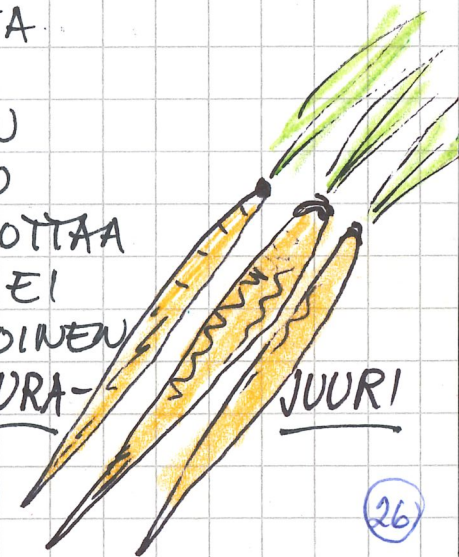 TA
U
O
OTTAA
EI
OINEN
URA- JUURI
26